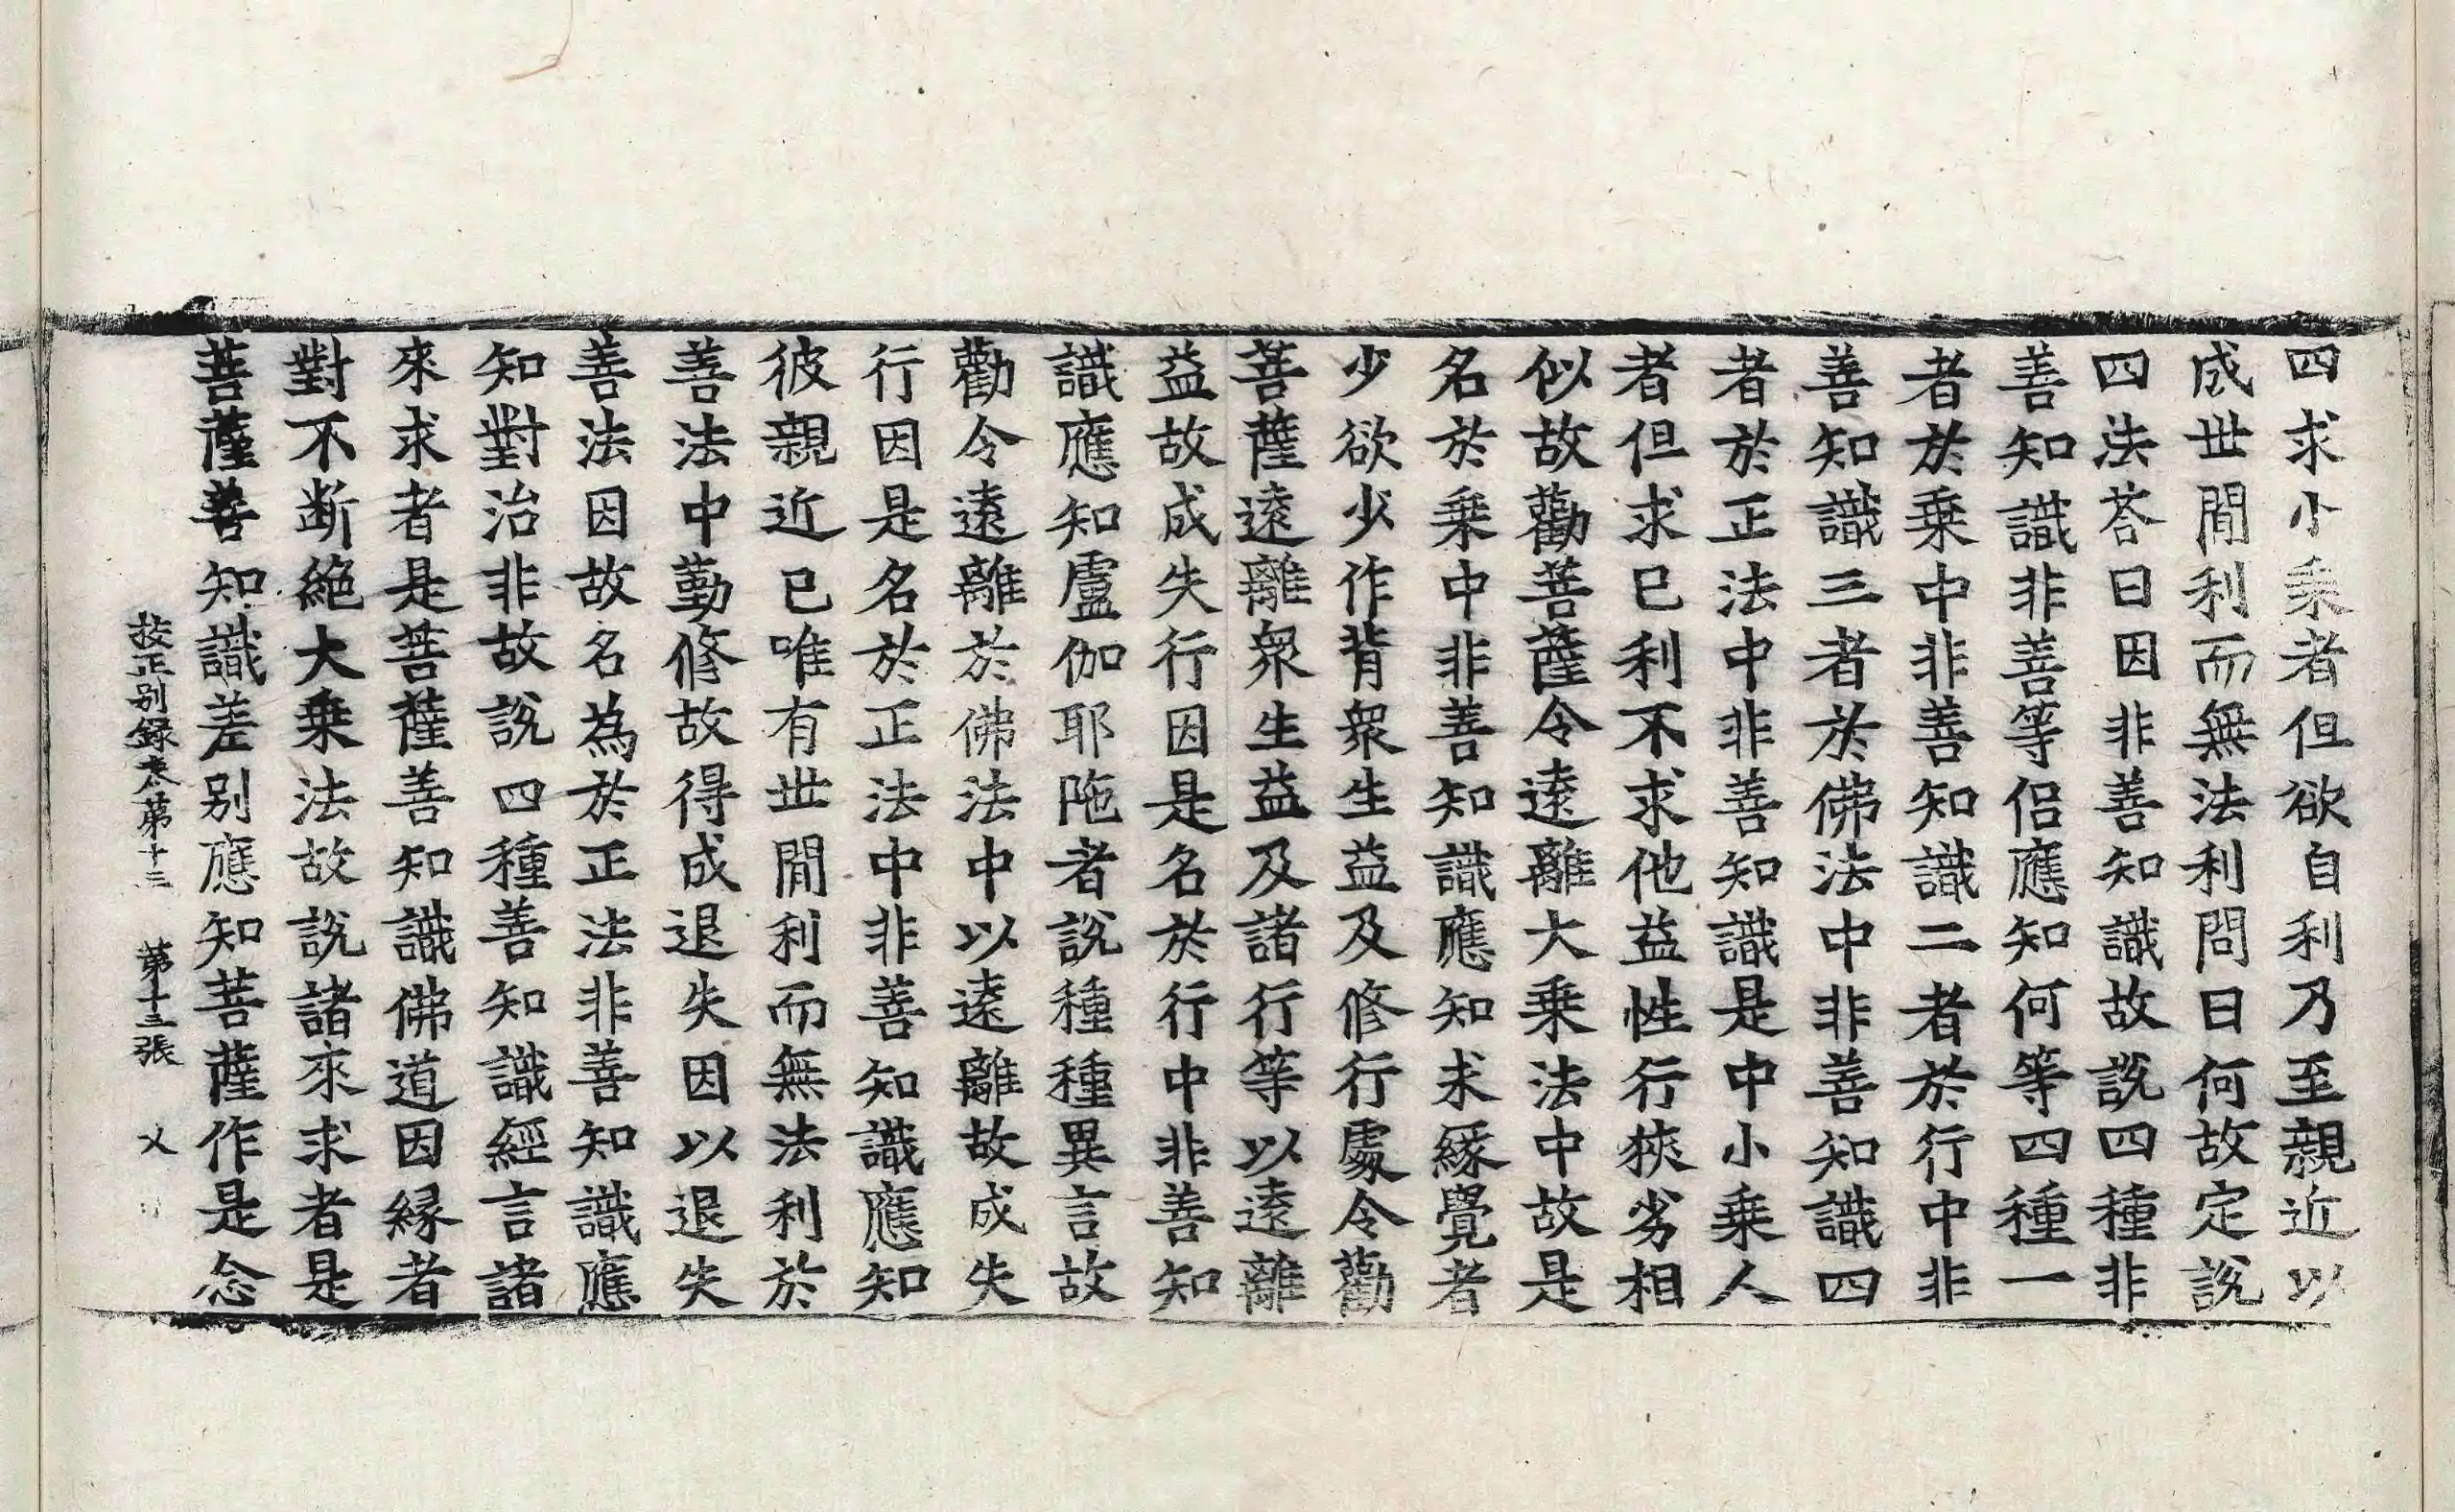 四求小乘者但欲自利乃至親近以
成世間利而無法利問曰何故定說
四法荅曰因非善知識故說四種非
善知識非善等侶應知何等四種一
者於乘中非善知識二者於行中非
善知識三者於佛法中非善知識四
者於正法中非善知識是中小乘人
者但求已利不求他益性行狹劣相
似故勸菩薩令遠離大乘法中故是
名於乘中非善知識應知求緣覺者
少欲少作背衆生益及修行處令勸
菩薩遠離衆生益及諸行等以遠離
益故成失行因是名於行中非善知
識應知盧伽耶陁者說種種異言故
勸令遠離於佛法中以遠離故成失
行因是名於正法中非善知識應知
彼親近已唯有世間利而無法利於
善法中勤修故得成退失因以退失
善法因故名為於正法非善知識應
知對治非故說四種善知識經言諸
來求者是菩薩善知識佛道因緣者
對不断絶大乘法故說諸來求者是
菩薩善知識差别應知菩薩作是念
挍正别録卷第十三　第十三張　乂